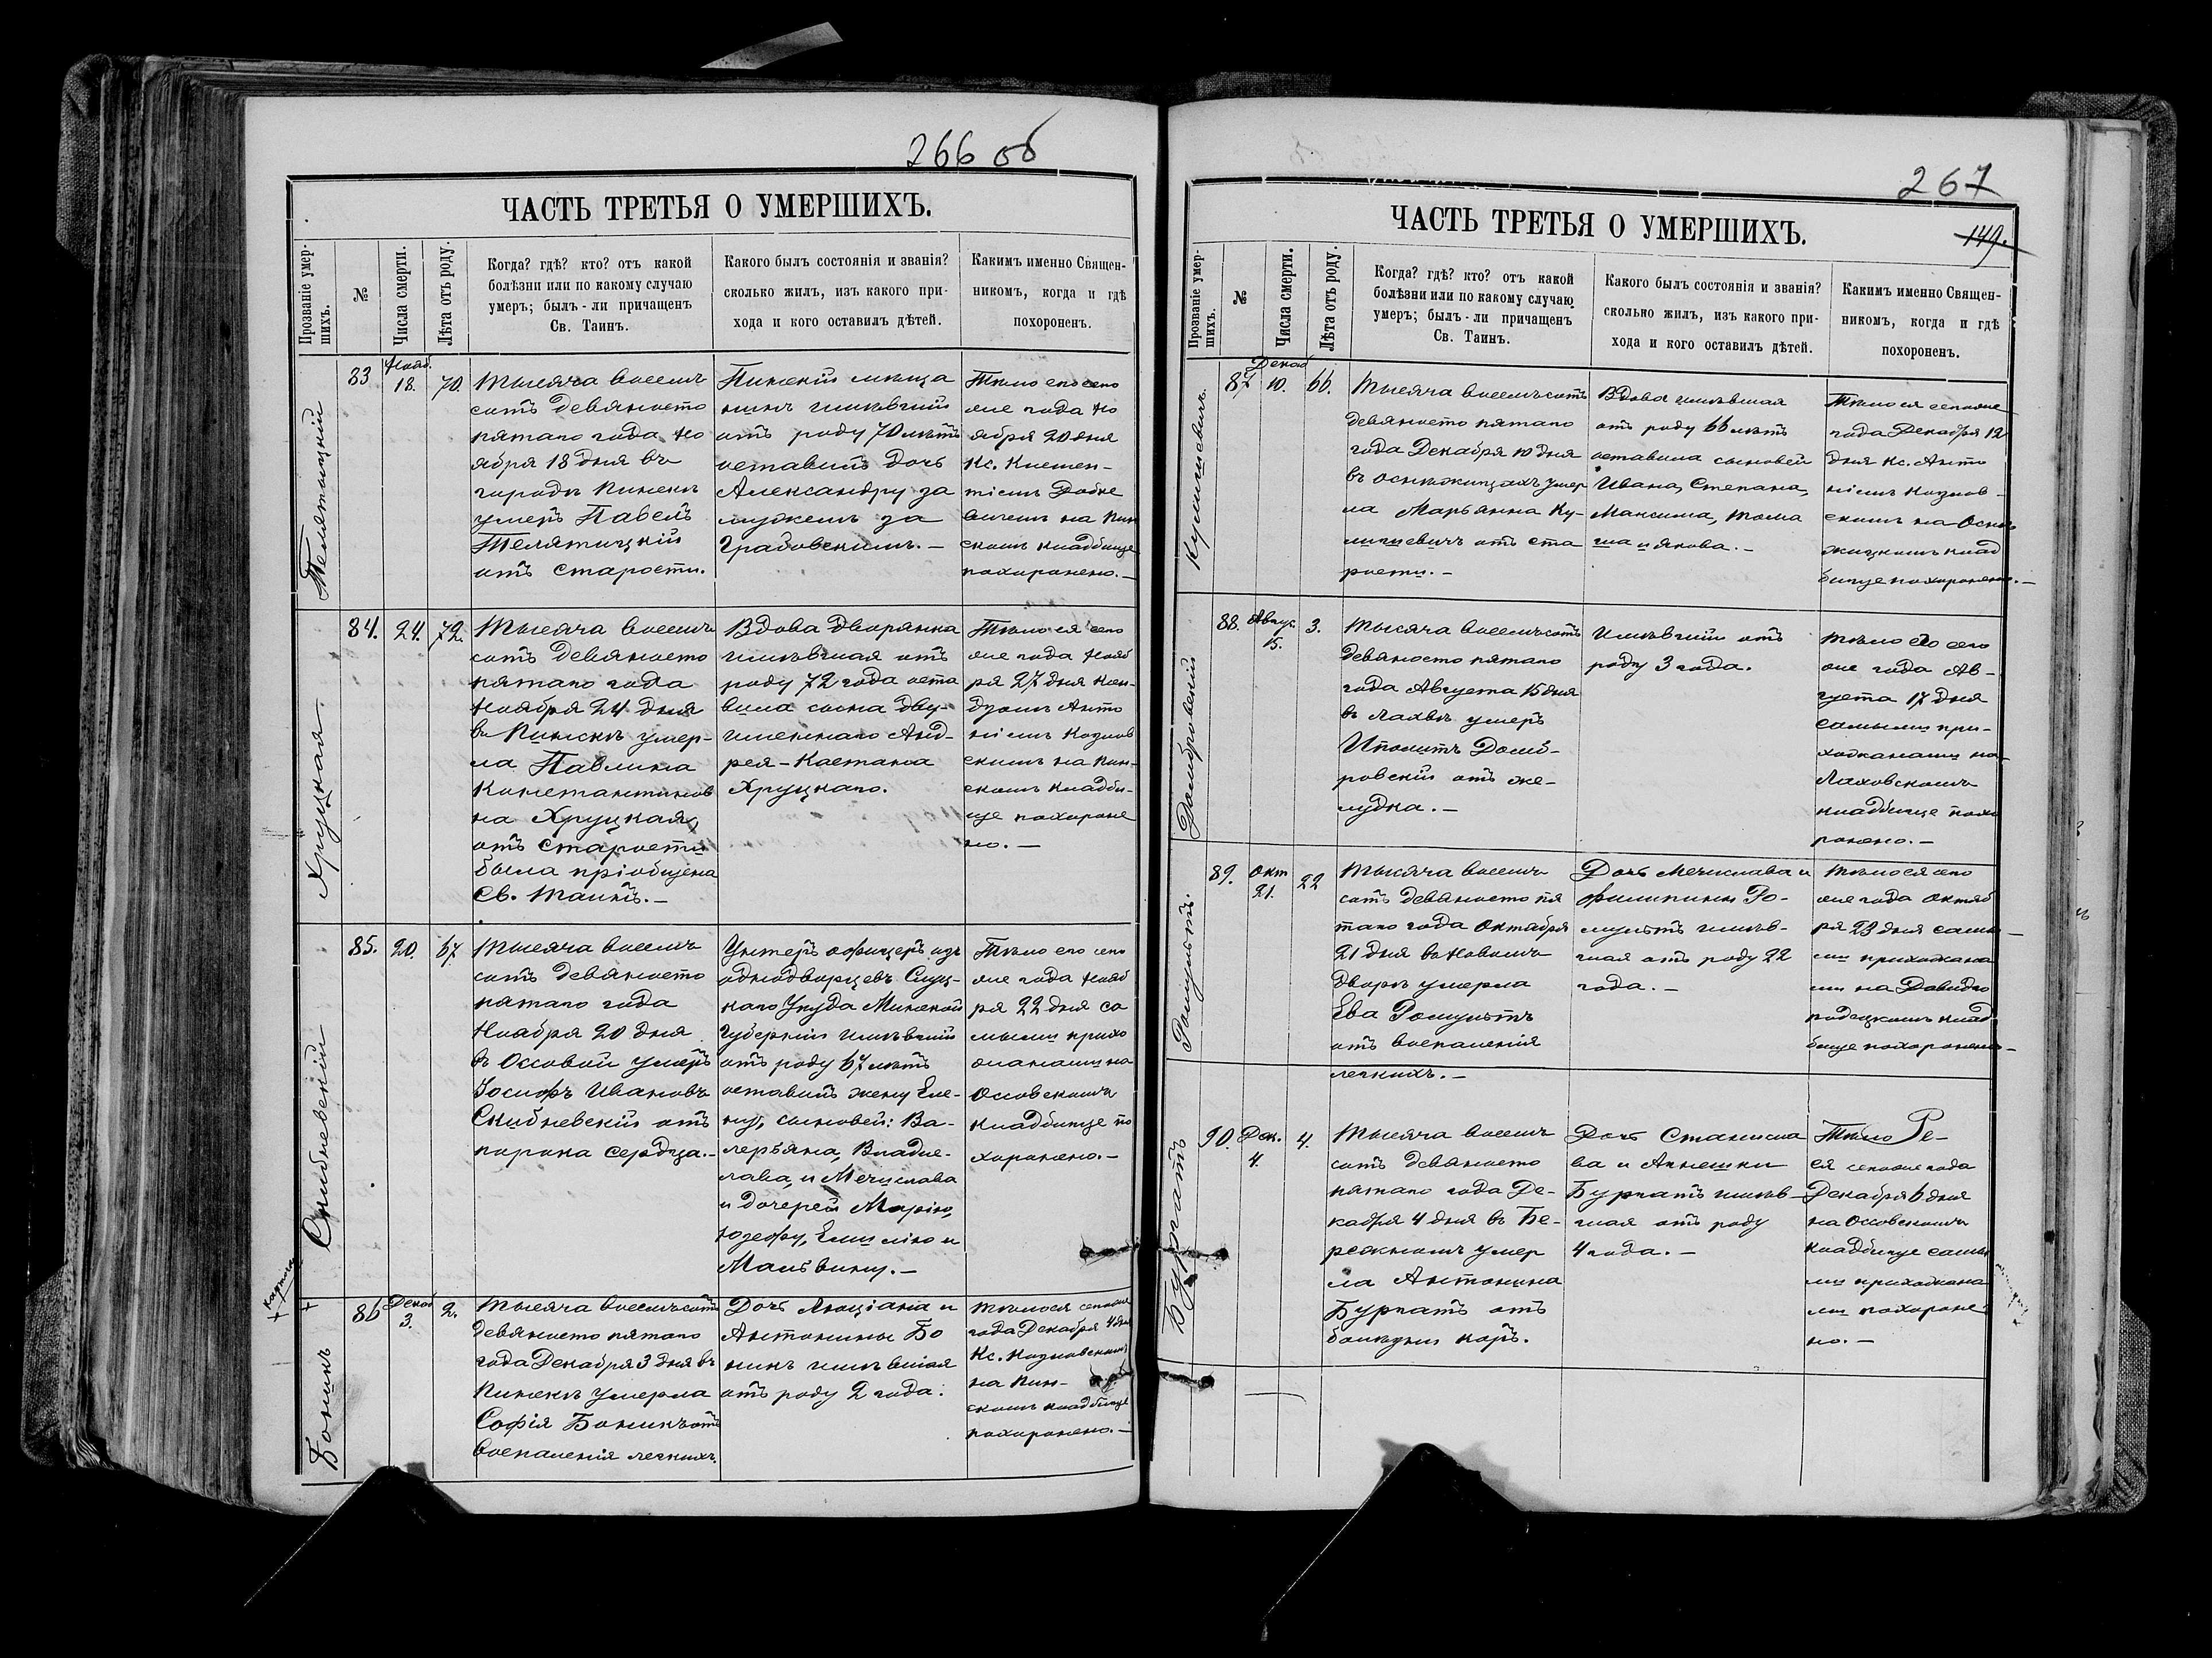 266 об
ЧАСТЬ ТРЕТЬЯ О УМЕРШИХЪ.
Прозваніе умер-
шихъ.
№
Числа смерти.
Лѣта отъ роду.
Когда? гдѣ? кто? отъ какой
болѣзни или по какому случаю
умеръ; былъ-ли причащенъ
Св. Таинъ.
Какого былъ состоянія и званія?
сколько жилъ, изъ какого при-
хода и кого оставилъ дѣтей.
Какимъ именно Священ-
никомъ, когда и гдѣ
похороненъ.
Телятицкій
83
Нояб.
18.
70.
Тысяча восемь
сотъ девяносто
пятаго года но
ября 18 дня въ
городѣ Пинскѣ
умеръ Павелъ
Телятицкій
отъ старости.
Пинскій мѣща
нинъ имѣвшій
отъ роду 70 лѣтъ
оставилъ дочь
Александру за
мужемъ за
Грабовскимъ.-
Тѣло его сего
же года Но
ября 20 дня
Кс. Климен-
тіемъ Добке
вичемъ на Пин
скомъ кладбище
похоронено.-
Хруцкая.
84.
24.
72.
Тысяча восемь
сотъ девяносто
пятаго года
Ноября 24 дня
въ Пинскѣ умер-
ла Павлина
Константинов
на Хруцкая,
отъ старости
была пріобщена
Св. Таинъ.-
Вдова дворянка
имѣвшая отъ
роду 72 года оста
вила сына дву-
именнаго Анд-
рея-Каетана
Хруцкаго.
Тѣло ея сего
же года Нояб
ря 27 дня Ксен-
дзомъ Анто
ніемъ Козлов
скимъ на Пин-
скомъ кладби-
ще похороне
но.-
Скибневскій
85.
20.
67
Тысяча восемь
сотъ девяносто
пятаго года
Ноября 20 дня
въ Оссовой умеръ
Іосифъ Ивановъ
Скибневскій отъ
порока сердца.-
Унтеръ офицеръ изъ
однодворцевъ Слуц-
каго Уѣзда Минской
Губерніи имѣвшій
отъ роду 67 лѣтъ
оставилъ жену Еле-
ну, сыновей: Ва-
лерьяна, Владис-
лава, и Мечислава
и дочерей Марію,
Юзефу, Емилію и
Мальвину.-
Тѣло его сего
же года Нояб
ря 22 дня са
мыми прихо
жанами на
Оссовскомъ
кладбище по
хоронено.-
Боникъ
86
Декаб
3.
2.
Тысяча восемьсотъ
девяносто пятаго
года Декабря 3 дня въ
Пинскѣ умерла
Софія Боникъ отъ
воспаленія легкихъ.
Дочь Люціана и
Антонины Бо
никъ имѣвшая
отъ роду 2 года.
Тѣло ея сего же
года Декабря 4 дня
Кс. Козловскимъ
на Пин-
скомъ кладбище
похоронено.-
267
149.
ЧАСТЬ ТРЕТЬЯ О УМЕРШИХЪ.
Прозваніе умер-
шихъ.
№
Числа смерти.
Лѣта отъ роду.
Когда? гдѣ? кто? отъ какой
болѣзни или по какому случаю
умеръ; былъ-ли причащенъ
Св. Таинъ.
Какого былъ состоянія и званія?
сколько жилъ, изъ какого при-
хода и кого оставилъ дѣтей.
Какимъ именно Священ-
никомъ, когда и гдѣ
похороненъ.
87
Декаб
10.
66.
Тысяча восемьсотъ
девяносто пятаго
года Декабря 10 дня
въ Оснѣжицахъ умер
ла Марьянна Ку-
отъ ста
рости.-
Вдова имѣвшая
отъ роду 66 лѣтъ
оставила сыновей
Ивана, Степана,
Максима, Тома
ша и Якова.-
Тѣло ея сего же
года Декабря 12
дня Кс. Анто
ніемъ Козлов-
скимъ на Оснѣ
жицкомъ клад
бище похоронено.-
Домбровскій
88.
Авгус.
15.
3.
Тысяча восемьсотъ
девяносто пятаго
года Августа 15 дня
въ Лахвѣ умеръ
Иполитъ Домб-
ровскій отъ же-
лудка.-
Имѣвшій отъ
роду 3 года.
Тѣло его сего
же года Ав-
густа 17 дня
самыми при-
хожанами на
Лаховскомъ
кладбище похо
ронено.-
Ромультъ.
89.
Окт
21.
22
Тысяча восемь
сотъ девяносто пя
таго года Октября
21 дня въ Новомъ
Дворѣ умерла
Ева Ромультъ
отъ воспаленія
легкихъ.-
Дочь Мечислава и
Филипины Ро-
мультъ имѣв-
шая отъ роду 22
года.-
Тѣло ея сего
же года Октяб
ря 23 дня самы-
ми прихожана
ми на Давидго
родецкомъ клад-
бище похоронено-
Бурпатъ
90.
Дек.
4.
4.
Тысяча восемь
сотъ девяносто
пятаго года Де-
кабря 4 дня въ Бе-
режномъ умер
ла Антонина
Бурпатъ отъ
болѣзни корь.
Дочь Станисла
ва и Агнешки
Бурпатъ имѣв-
шая отъ роду
4 года.-
Тѣло
ея сего же года
Декабря 6 дня
на Оссовскомъ
кладбище самы
ми прихожана
ми похороне-
но.-